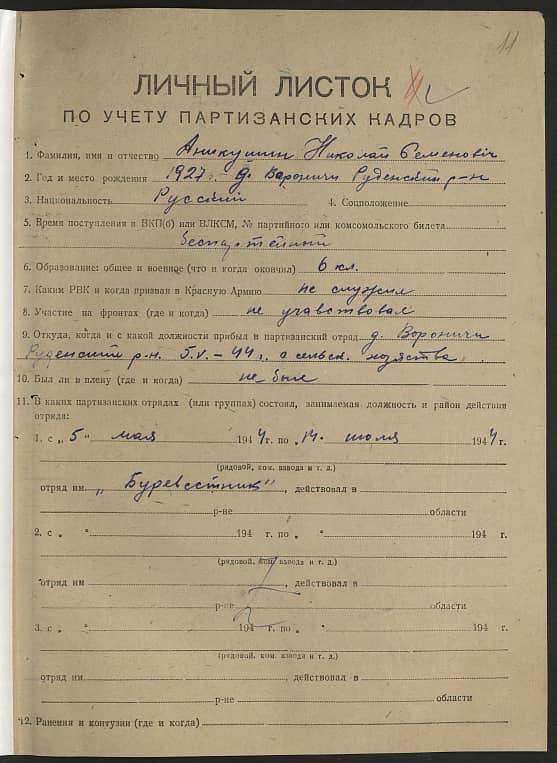 11
ЛИЧНЫЙ ЛИСТОК
ПО УЧЕТУ ПАРТИЗАНСКИХ КАДРОВ
1. Фамилия, имя и отчество Аникушин Николай Семеновіч
2. Год и место рождения 1927 г. д. Вароничи Руденский р-н
3. Национальность Русский 4. Соцположение
5. Время поступления в ВКП(б) или ВЛКСМ, № партийного или комсомольского билета
беспартейный
6. Образование: общее и военное (что и когда окончил) 6 кл.
7. Каким РВК и когда призван в Красную Армию не служил
8. Участие на фронтах (где и когда) не учавствовал
9. Откуда, когда и с какой должности прибыл в партизанский отряд д. Вороничи
Руденский р-н. 5.V.-44 г. а сельск. хозяства.
10. Был ли в плену (где и когда) не был
11. В каких партизанских отрядах (или группах) состоял, занимаемая должность и район действия
отряда:
1. с „5" мая 1944 г. по „14" июля 1944 г.
(рядовой, ком. взвода и т. д.)
отряд им „Буревестник", действовал в
р-не области
2. с „ " 194 г. по „ " 194 г.
(рядовой, ком. взвода и т. д.)
отряд им , действовал в
р-не области
3. с „ " 194 г. по „ " 194 г.
(рядовой, ком. взвода и т. д.)
отряд им , действовал в
р-не области
12. Ранения и контузии (где и когда)